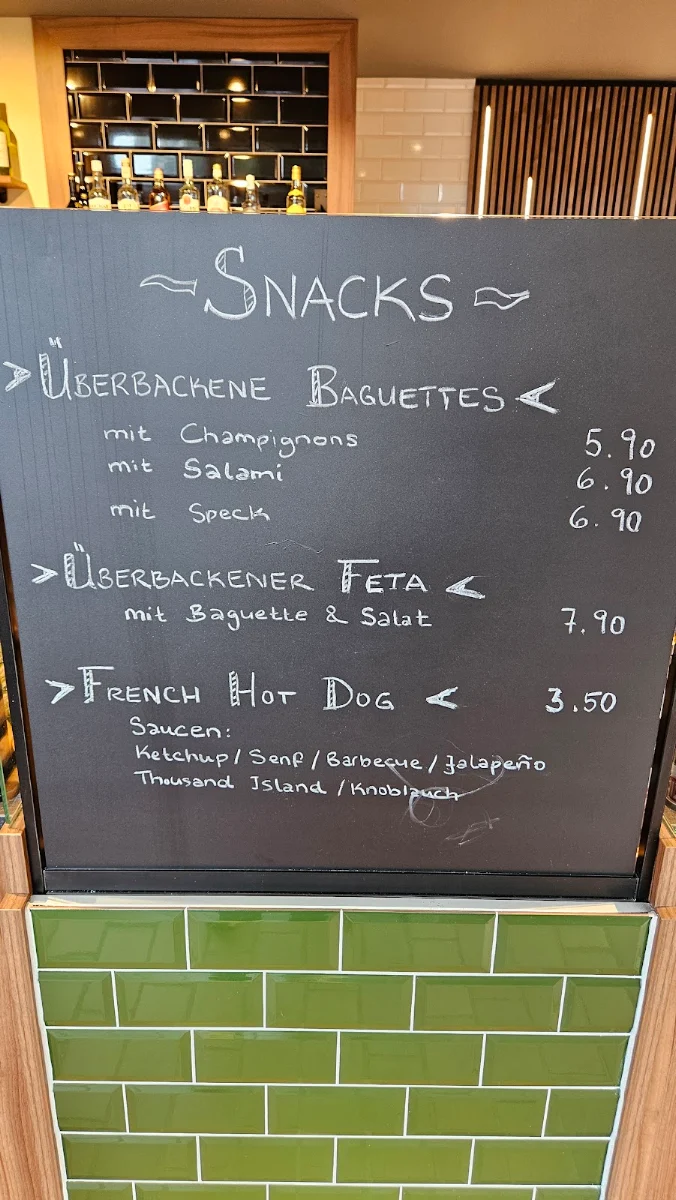 ~ SNACKS ~
> ÜBERBACKENE BAGUETTES <
mit Champignons 5.90
mit Salami 6.90
mit Speck 6.90
> ÜBERBACKENER FETA <
mit Baguette & Salat 7.90
> FRENCH HOT DOG < 3.50
Saucen:
Ketchup / Senf / Barbecue / Jalapeño
Thousand Island / Knoblauch